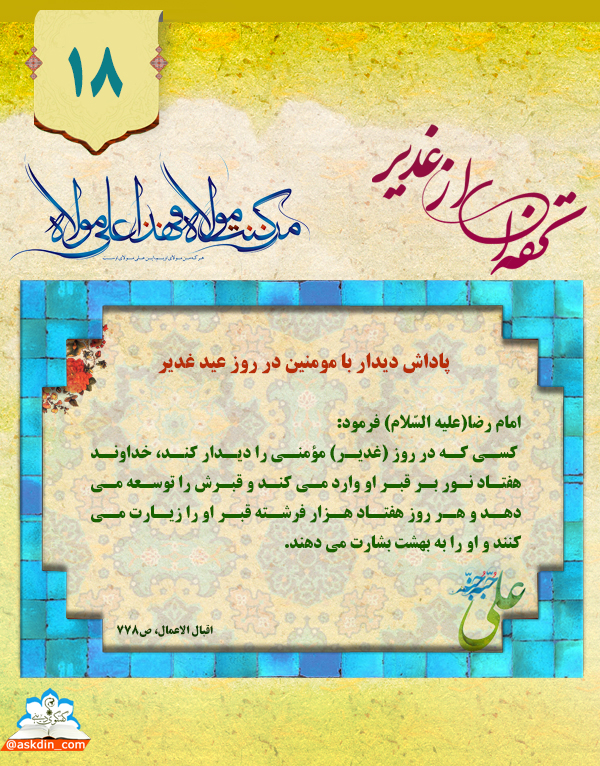 ۱۸
تحفه‌ای از غدیر
من کنت مولاه فهذا علی مولاه
هر که من مولای اویم این علی مولای اوست
پاداش دیدار با مومنین در روز عید غدیر
امام رضا(علیه السّلام) فرمود:
کسی که در روز (غدیر) مؤمنی را دیدار کند، خداوند
هفتاد نور بر قبر او وارد می کند و قبرش را توسعه می
دهد و هر روز هفتاد هزار فرشته قبر او را زیارت می
کنند و او را به بهشت بشارت می دهند.
علی حبه جنة
اقبال الاعمال، ص۷۷۸
@askdin_com